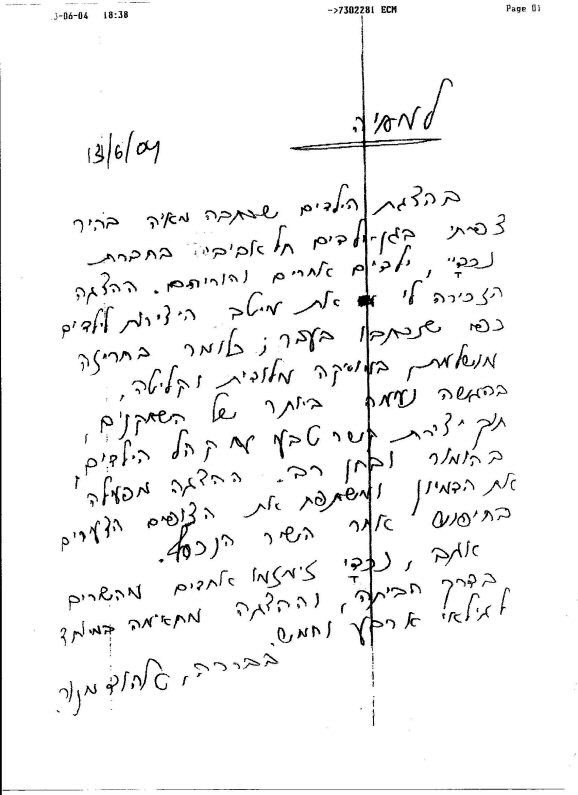 3-06-04 18:38 ->7302281 ECM Page 01
למאיה
13/6/04
בהצגת הילדים שכתבה מאיה בהיר
צפיתי בגן-ילדים תל אביבי בחברת
נכדיי, ילדים אחרים והוריהם. ההצגה
הזכירה לי את מיטב היצירות לילדים
כפי שנכתבו בעבר; כלומר בחריזה
מושלמת, במוסיקה מלודית וקליטה,
בהגשה נעימה ביותר של השחקנים,
תוך יצירת קשר טבעי עם קהל הילדים,
בהומור ובחן רב. ההצגה מפעילה
את הדמיון ומשתפת את הצופים הצעירים
בחיפוש אחר השיר הנכסף.
אגב, נכדי זימזמו אחדים מהשירים
בדרך הביתה, וההצגה מתאימה במיוחד
לגילאי ארבע וחמש.
בברכה, אהוד מנור.